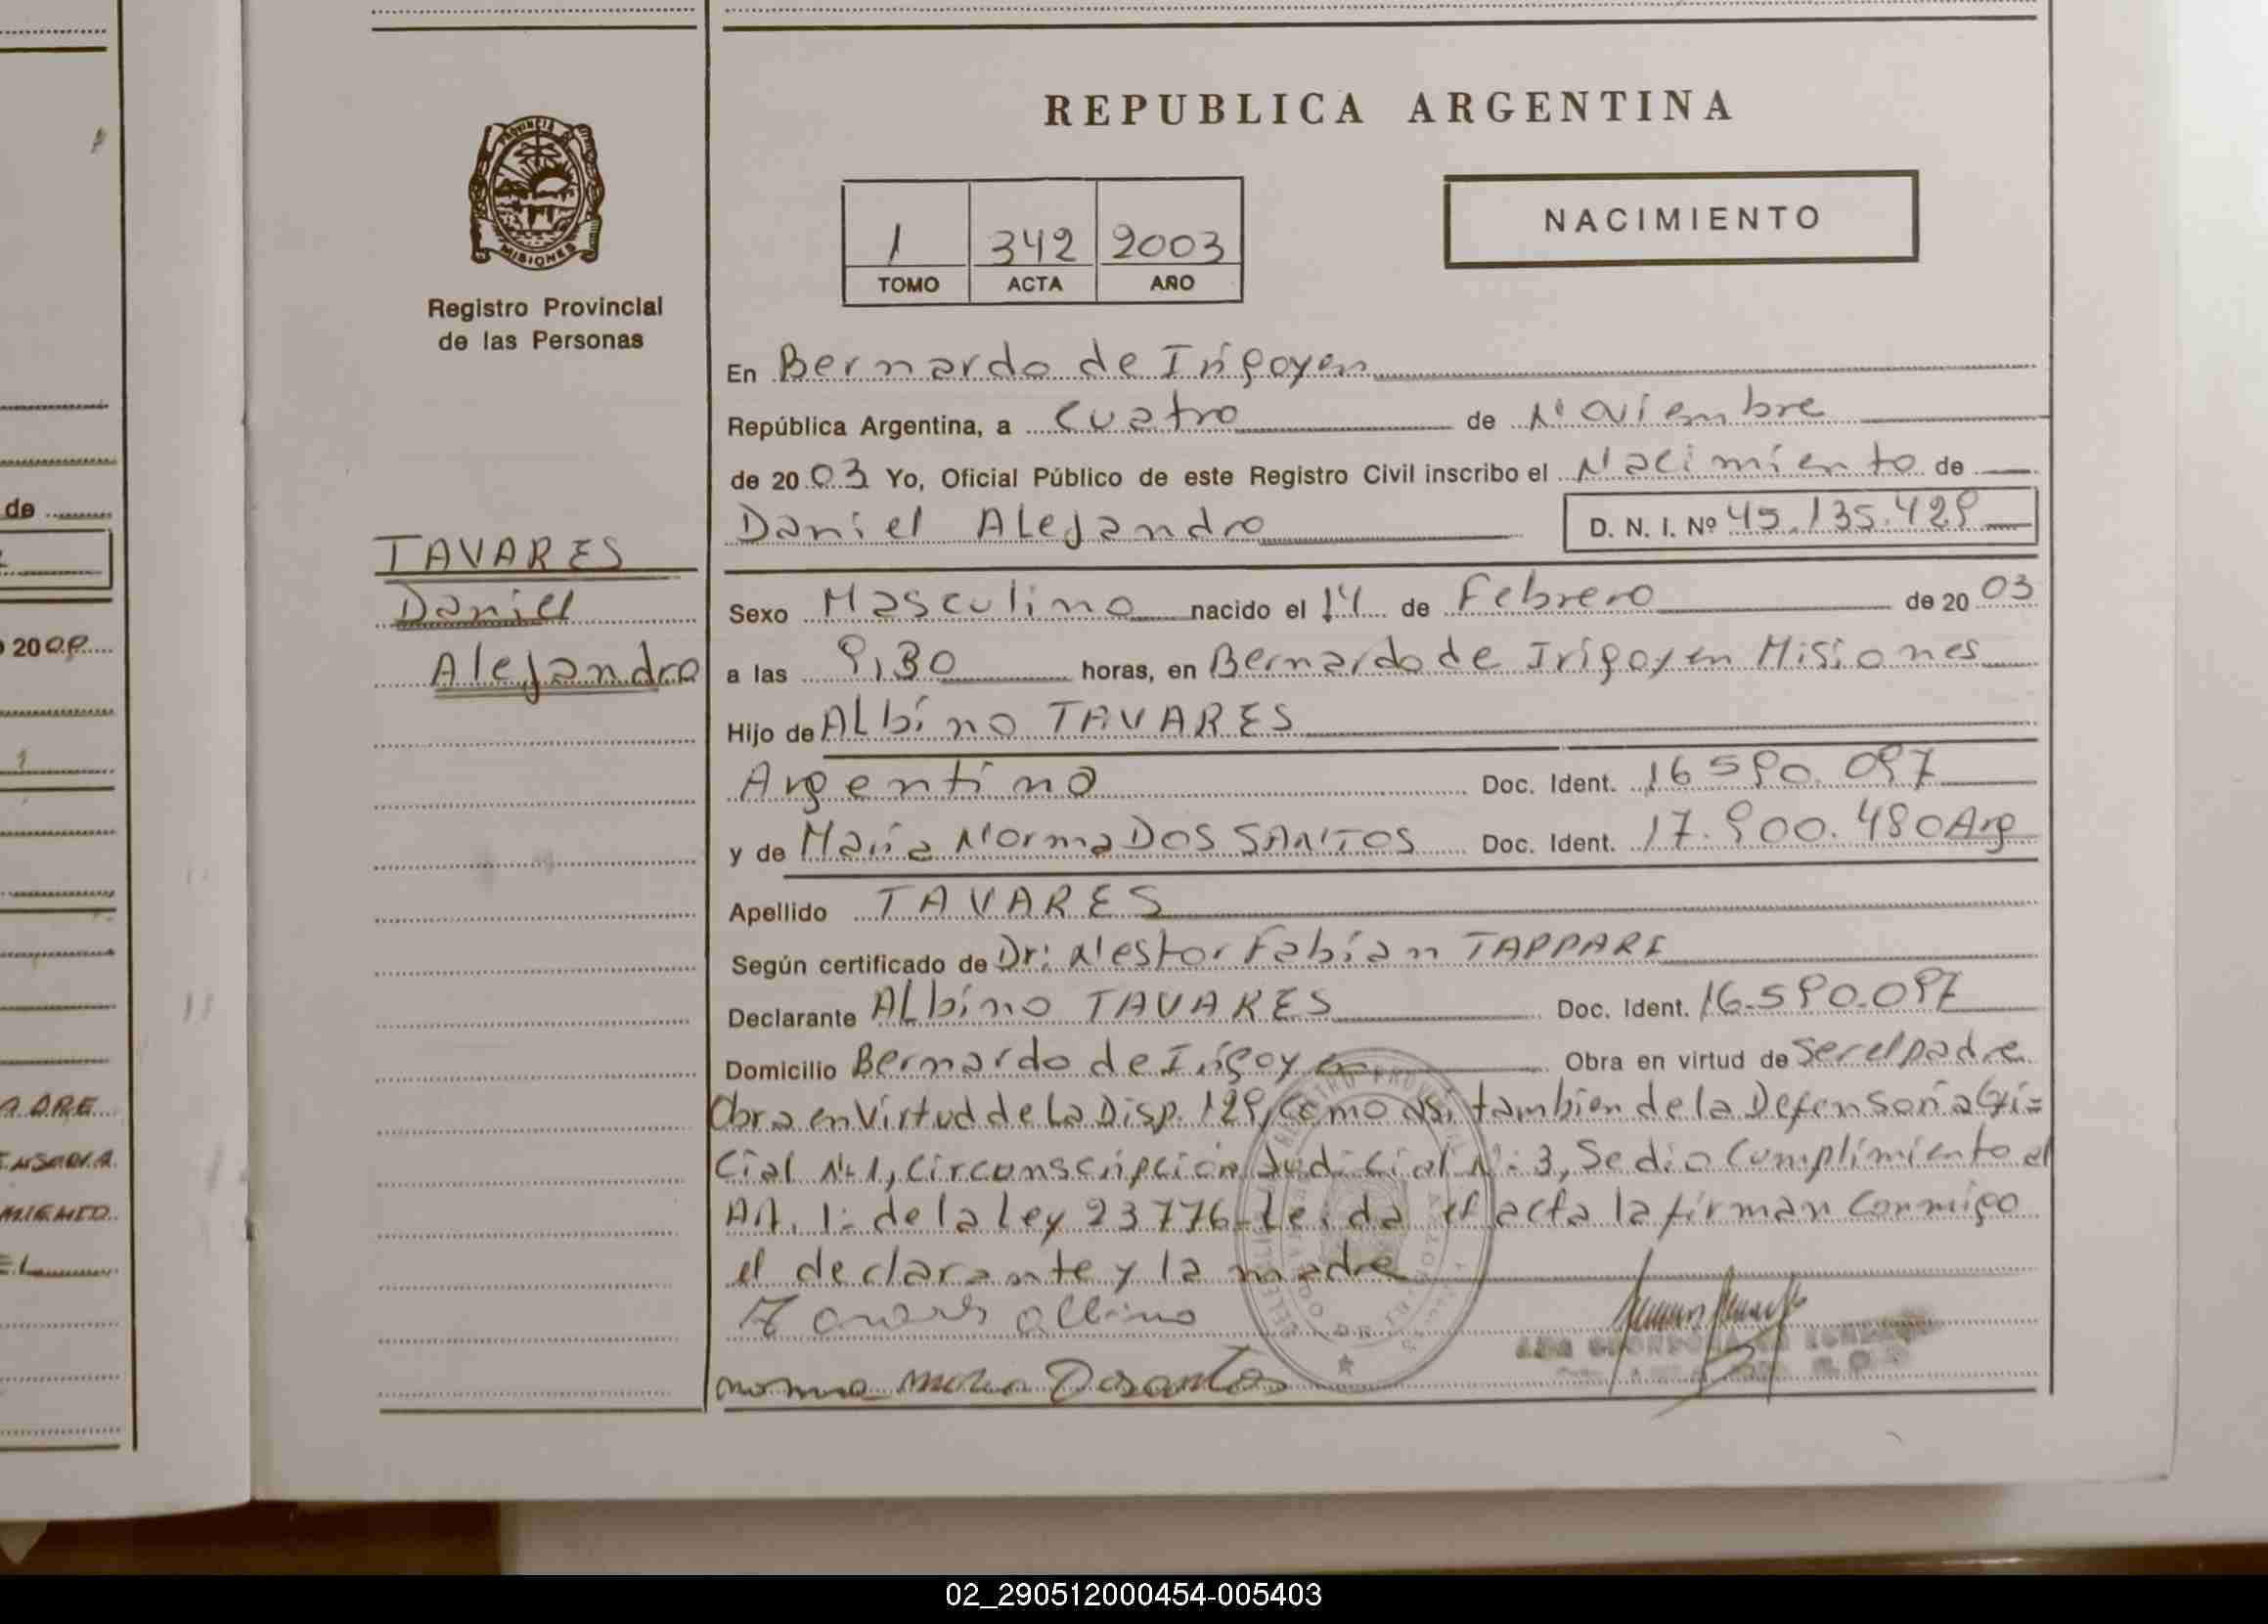 REPUBLICA ARGENTINA
PROVINCIA DE
MISIONES
Registro Provincial
de las Personas
1 342 2003
TOMO ACTA AÑO
NACIMIENTO
En Bernardo de Irigoyen
República Argentina, a Cuatro de Noviembre
de 2003 Yo, Oficial Público de este Registro Civil inscribo el Nacimiento de
Daniel Alejandro D. N. I. Nº 45.135.429
TAVARES
Daniel
Alejandro
Sexo Masculino nacido el 14 de Febrero de 2003
a las 9,30 horas, en Bernardo de Irigoyen Misiones
Hijo de Albino TAVARES
Argentino Doc. Ident. 16 590.097
y de María Norma DOS SANTOS Doc. Ident. 17.900.480 Arg
Apellido TAVARES
Según certificado de Dr: Nestor Fabián TAPPARE
Declarante Albino TAVARES Doc. Ident. 16.590.097
Domicilio Bernardo de Irigoyen Obra en virtud de ser el padre
Obra en Virtud de La Disp. 129, como así tambien de la Defensoria Ofi=
cial Nº 1, Circonscripción Judicial Nº: 3, Se dio Cumplimiento al
Art. 1: de la Ley 23776- Leida el acta la firman Conmigo
el declarante y la madre
Tavares albino
norma maria Dosantos
de
2009
02_290512000454-005403